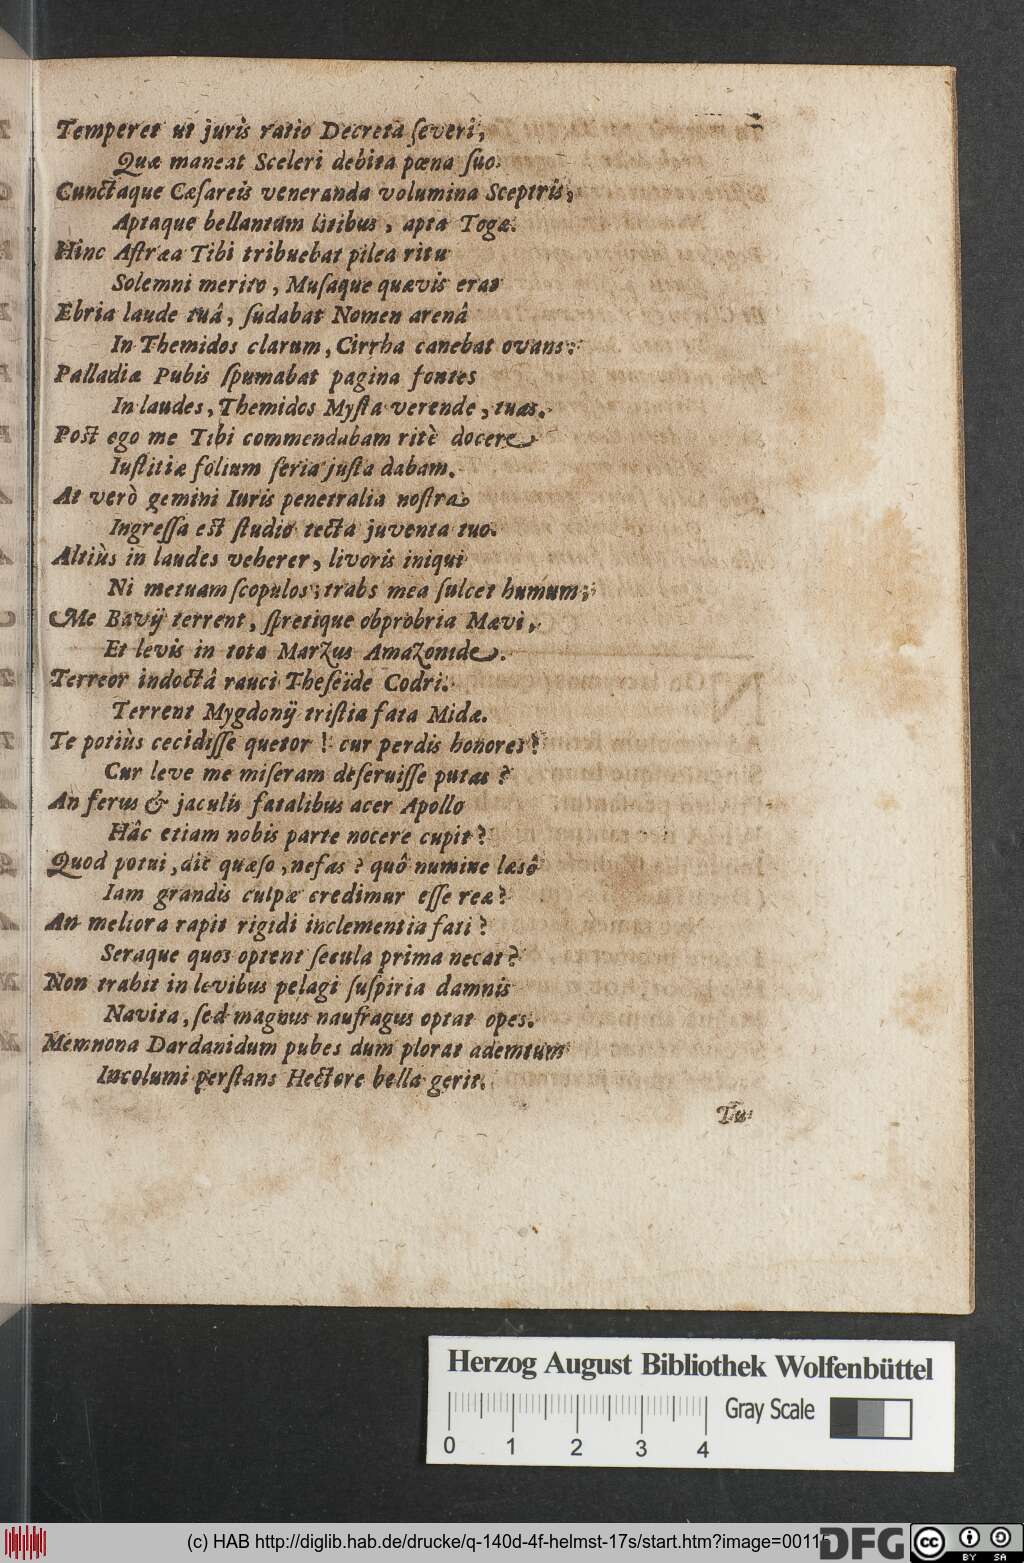 Temperet ut juris ratio Decreta ſeveri,
Quæ maneat Sceleri debita pœna ſuo.
Cunctaque Cæſareis veneranda volumina Sceptris,
Aptaque bellantûm litibus, apta Togæ.
Hinc Aſtræa Tibi tribuebat pilea ritu
Solemni merito, Muſaque quævis erat
Ebria laude tuâ, ſudabat Nomen arenâ
In Themidos clarum, Cirrha canebat ovans:
Palladiæ Pubis ſpumabat pagina fontes
In laudes, Themidos Myſta verende, tuas.
Poſt ego me Tibi commendabam ritè docere
Iuſtitiæ folium ſeria juſta dabam.
At verò gemini Iuris penetralia noſtra
Ingreſſa eſt ſtudio tecta juventa tuo.
Altiùs in laudes veherer, livoris iniqui
Ni metuam ſcopulos; trabs mea ſulcet humum;
Me Bavij terrent, ſpretique obprobria Mævi,
Et levis in tota Marzus Amazonide.
Terreor indoctâ rauci Theſeïde Codri.
Terrent Mygdonij triſtia fata Midæ.
Te potiùs cecidiſſe queror! cur perdis honores?
Cur leve me miſeram deſeruiſſe putas?
An ferus & jaculis fatalibus acer Apollo
Hâc etiam nobis parte nocere cupit?
Quod potui, dic quæſo, nefas? quô numine læsô
Iam grandis culpæ credimur eſſe reæ?
An meliora rapit rigidi inclementia fati?
Seraque quos optent ſecula prima necat?
Non trahit in levibus pelagi ſuſpiria damnis
Navita, ſed magnus naufragus optat opes.
Memnona Dardanidum pubes dum plorat ademtum
Incolumi perſtans Hectore bella gerit.
Tu
Herzog August Bibliothek Wolfenbüttel
Gray Scale
0 1 2 3 4
(c) HAB http://diglib.hab.de/drucke/q-140d-4f-helmst-17s/start.htm?image=0011
DFG
cc BY SA